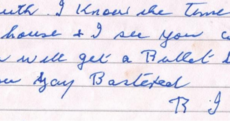 uth. I know the time
house + I see you
will get a Bullet
Gay Bastered
R J